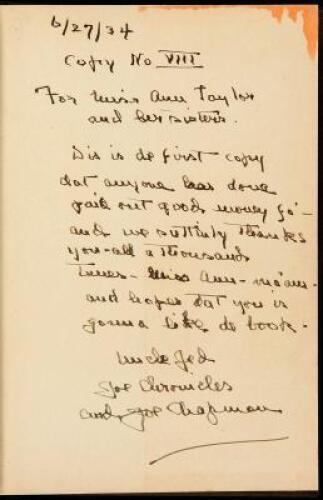 6/27/34
Copy No VIII
For Miss Ann Taylor
and her sisters.
Dis is de first copy
dat anyone has done
paid out good money fo'-
and we suttinly thanks
you-all a thousand
times - Miss Ann - ma'am -
and hopes dat you is
gonna like de book.
Uncle Jed
Joe Chronicles
and Joe Chapman